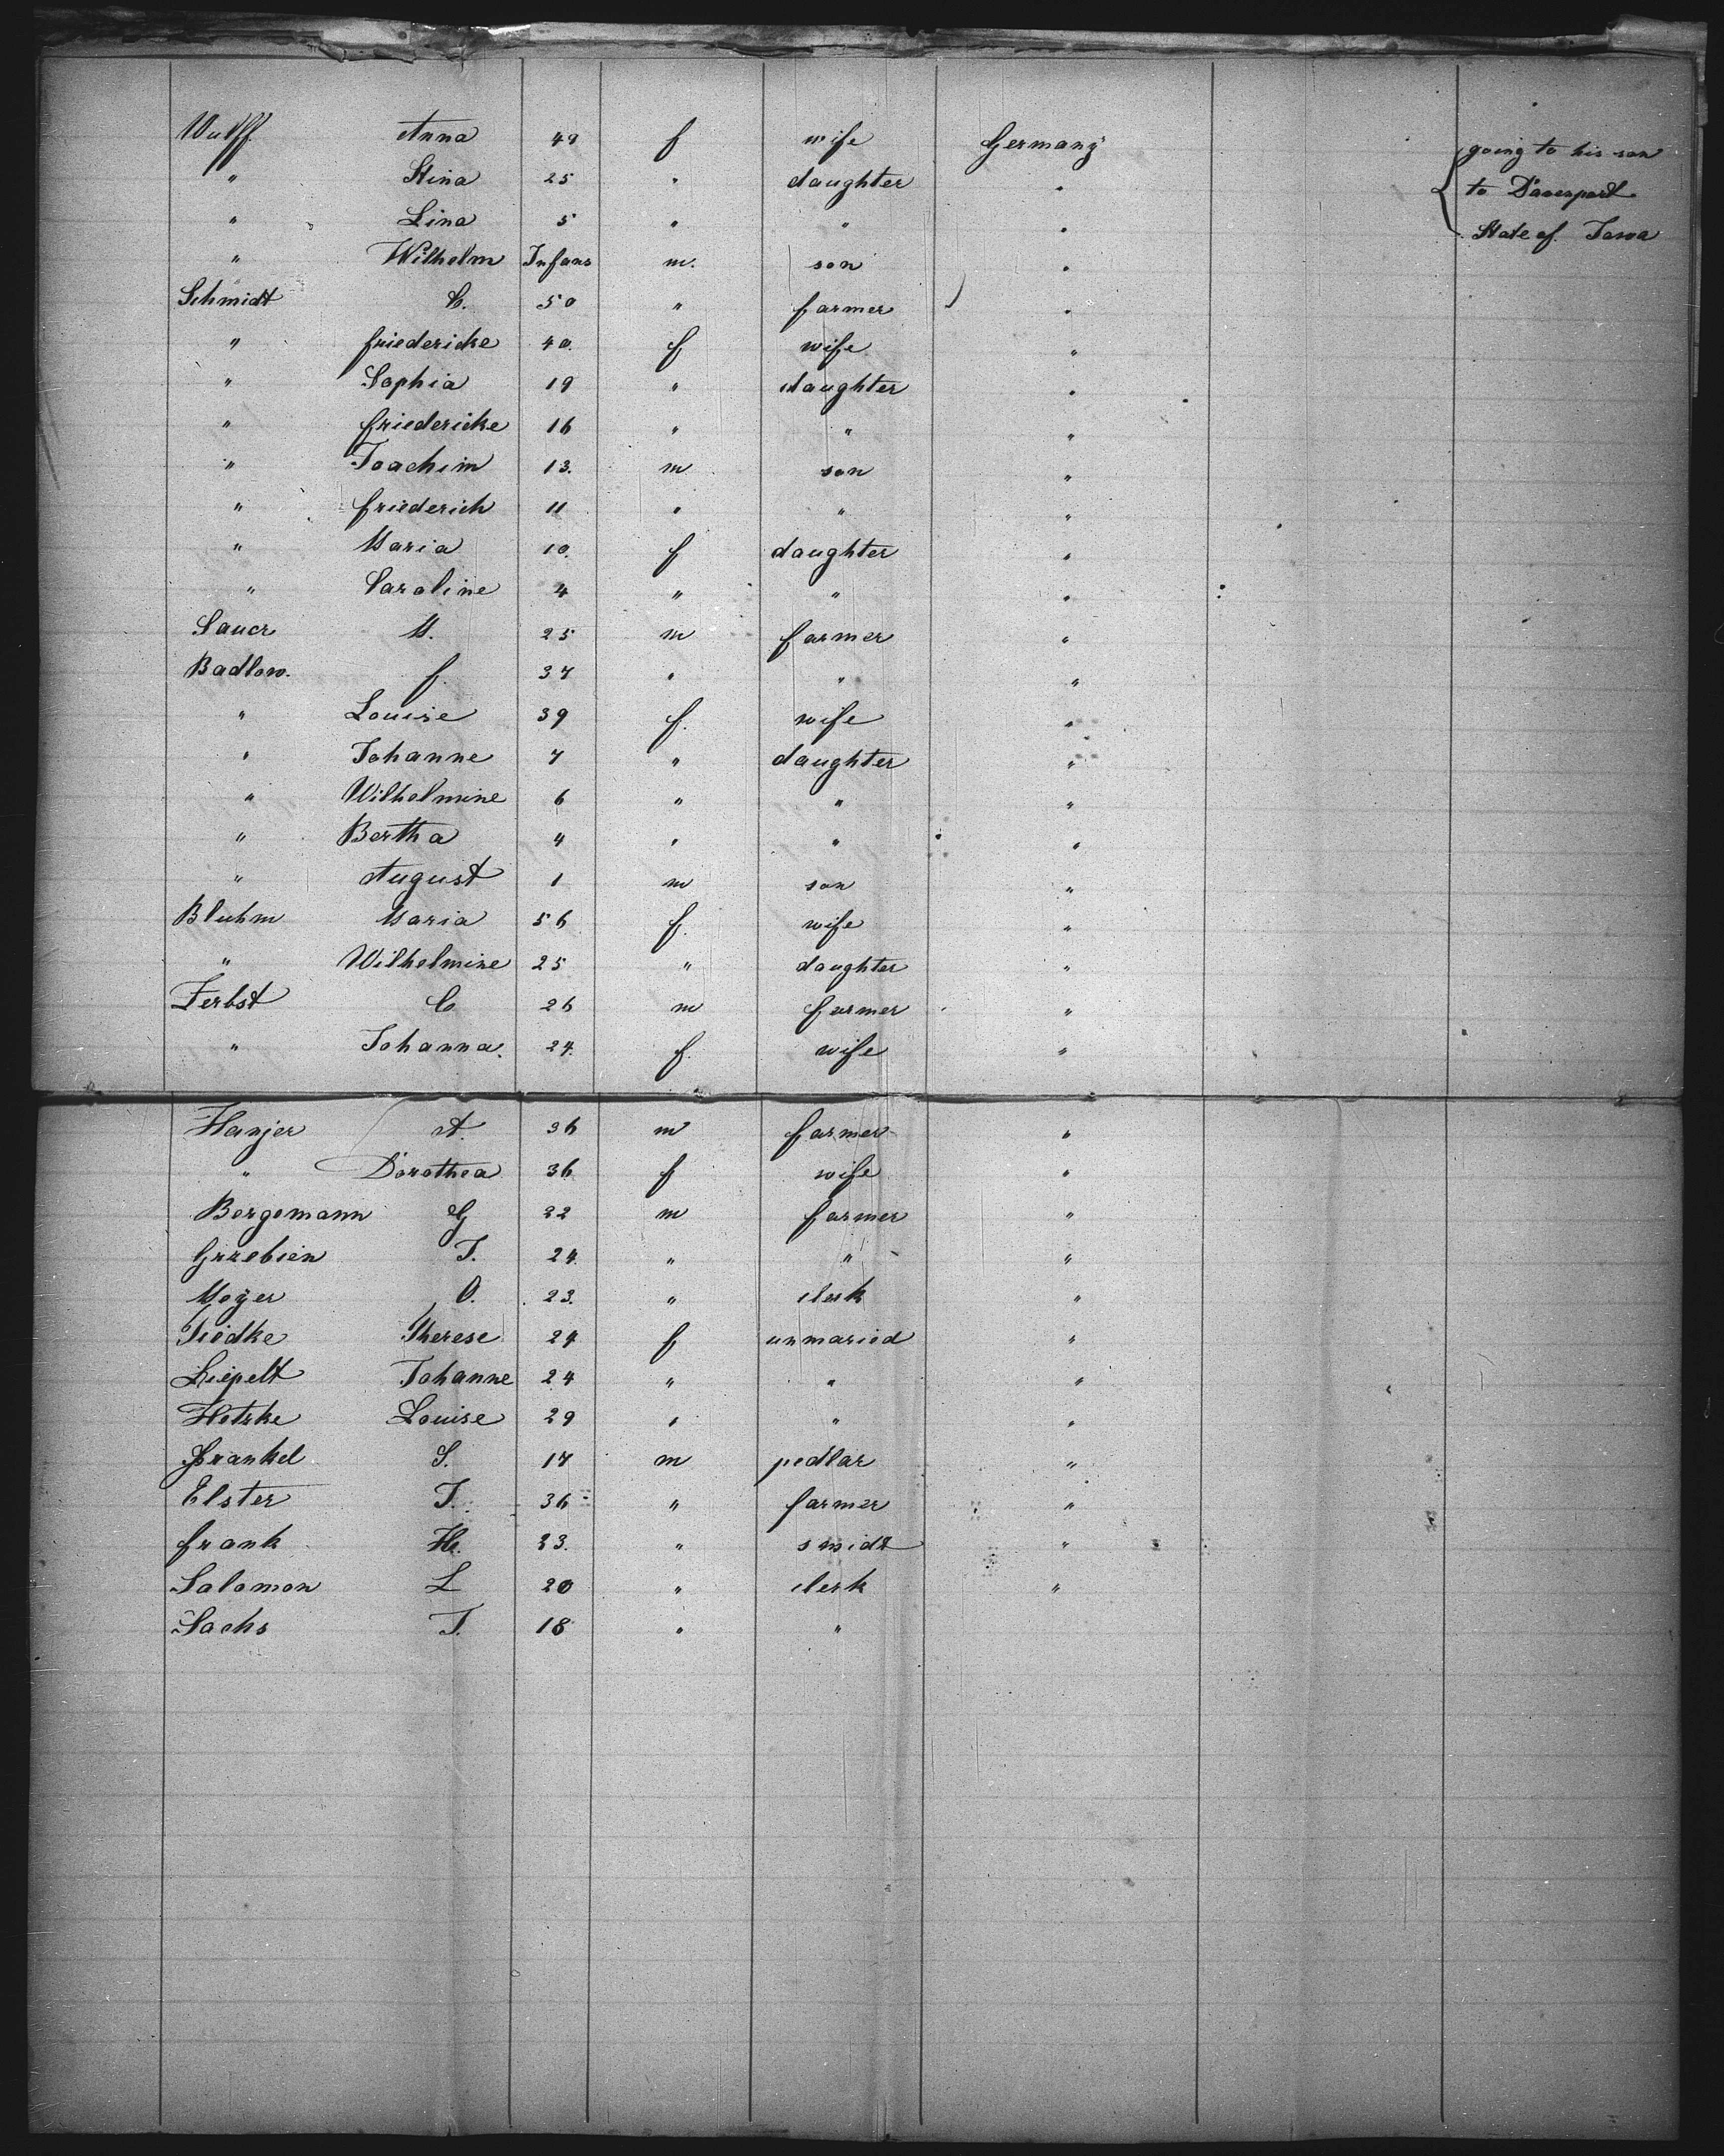 Wulff Anna 49 f wife Germany going to his son
" Stina 25 " daughter " to Davenport
" Lina 5 " " " State of Iowa
" Wilhelm Infans m. son "
Schmidt C. 50 " farmer "
" friedericke 40. f wife "
" Sophia 19 " daughter "
" friedericke 16 " " "
" Joachim 13. m son "
" friederich 11 " " "
" Maria 10. f daughter "
" Caroline 4 " " "
Sauer M. 25 m farmer "
Badlow. f. 37 " " "
" Louise 39 f. wife "
" Johanne 7 " daughter "
" Wilhelmine 6 " " "
" Bertha 4 " " "
" August 1 m son "
Bluhm Maria 56 f. wife "
" Wilhelmine 25 " daughter "
Ferbst C 26 m farmer "
" Johanna. 24. f. wife "
Hanjer A. 36 m farmer "
" Dorothea 36 f wife "
Bergemann G 22 m farmer "
Grzebien J. 24. " " "
Meyer O. 23. " clerk "
Tiedke Therese 24 f unmaried "
Liepelt Johanne 24 " " "
Hotzke Louise 29 " " "
Frankel S. 17 m pedlar "
Elster J. 36 " farmer "
frank H. 23. " smidt "
Salomon L 20 " clerk "
Sachs J. 18 " "